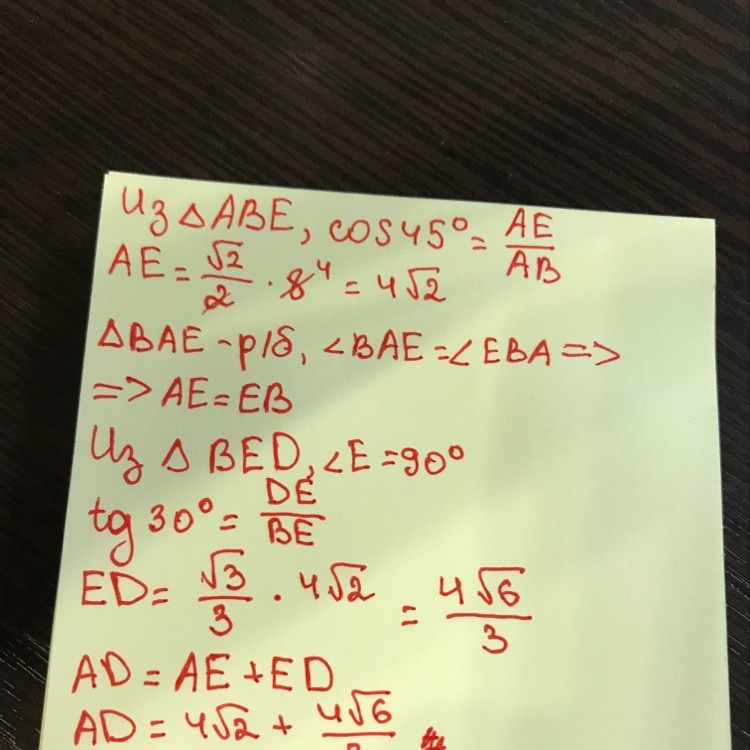 Из △ABE, cos45° = AE/AB
AE = √2/2 · 8 4 = 4√2
△BAE - р/б, ∠BAE = ∠EBA =>
=> AE = EB
Из △ BED, ∠E = 90°
tg 30° = DE/BE
ED = √3/3 · 4√2 = 4√6/3
AD = AE + ED
AD = 4√2 + 4√6/3